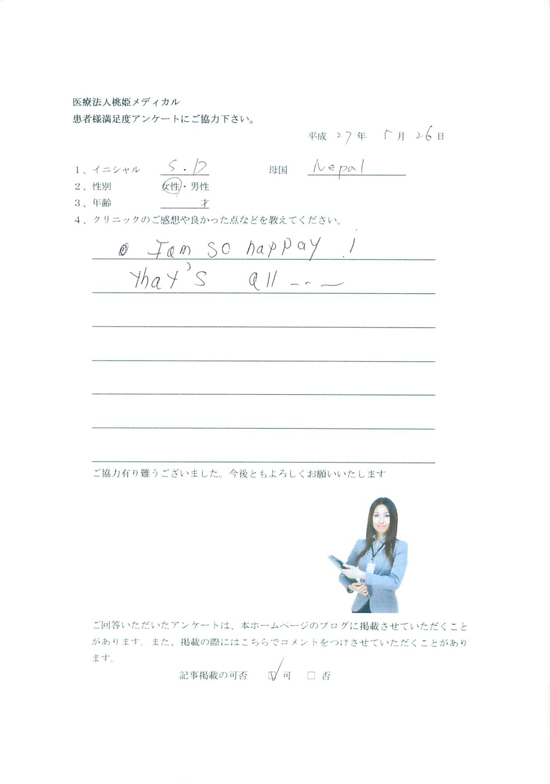 医療法人桃姫メディカル
患者様満足度アンケートにご協力下さい。
平成 27 年 5 月 26 日
1、イニシャル S.D 母国 Nepal
2、性別 女性・男性
3、年齢 才
4、クリニックのご感想や良かった点などを教えてください。
I am so happay !
that's all ---
ご協力有り難うございました。今後ともよろしくお願いいたします
ご回答いただいたアンケートは、本ホームページのブログに掲載させていただくこと
があります。また、掲載の際にはこちらでコメントをつけさせていただくことがあり
ます。
記事掲載の可否 ☑ 可 □ 否